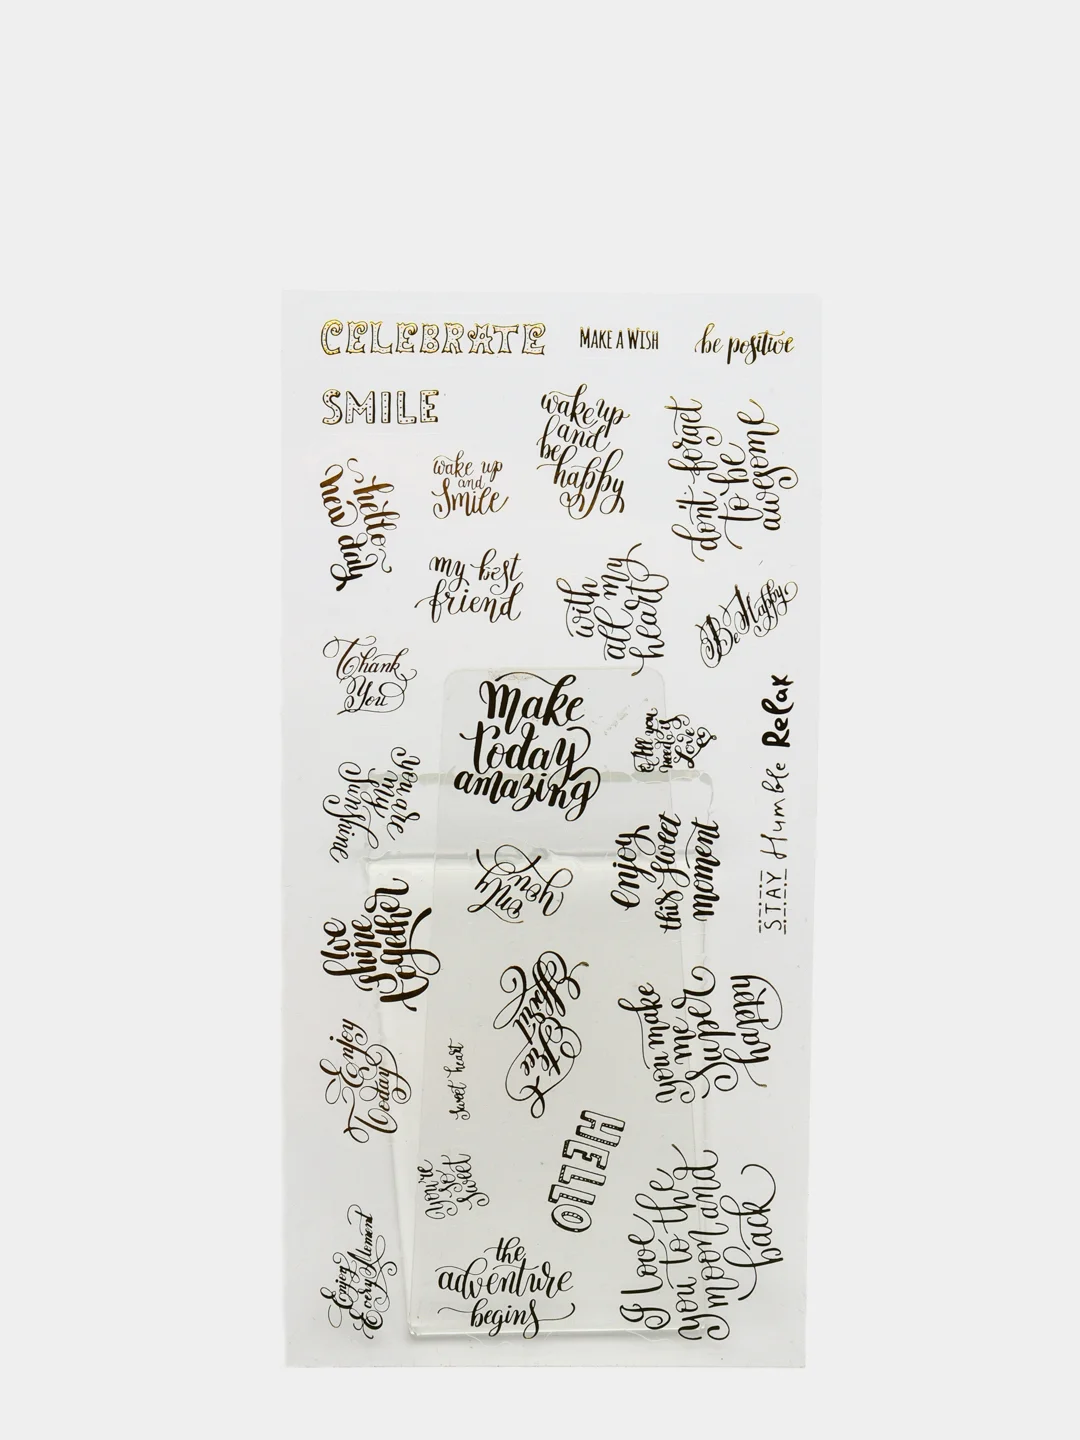 CELEBRATE
MAKE A WISH
be positive
SMILE
wake up
and
be
happy
don't forget
to be
awesome
wake up
and
Smile
hello
new day
my best
friend
with
all my
heart
Be Happy
Thank
You
Make
today
amazing
All you
need is
Love
Relax
Humble
STAY
you are
my
Sunshine
enjoy
this sweet
moment
only
you
we
shine
together
Free
Spirit
you make
me
super
happy
Enjoy
Today
Sweet heart
HELLO
you're
so
sweet
I love
you to the
moon and
back
Enjoy
Every Moment
the
adventure
begins